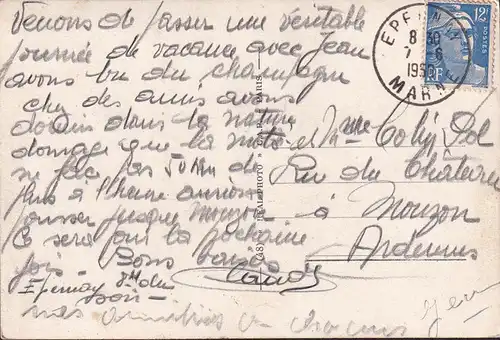 Venons de passer une véritable
journée de vacance avec Jean
avons bu du champagne
chez des amis avons
dormi dans la nature
domage que la moto
ne fait pas 50 Km de
plus à l'heure aurions
pousser jusque Mouzon
ce sera pour la prochaine
fois - Bons baisers
Epernay
soir
nos amitiés à chacuns
Jean
EPERNAY
8 30
7 - 6
195
MARNE
12F
POSTES
RF
Mme Colin Pol
Rue du Château
à Mouzon
Ardennes